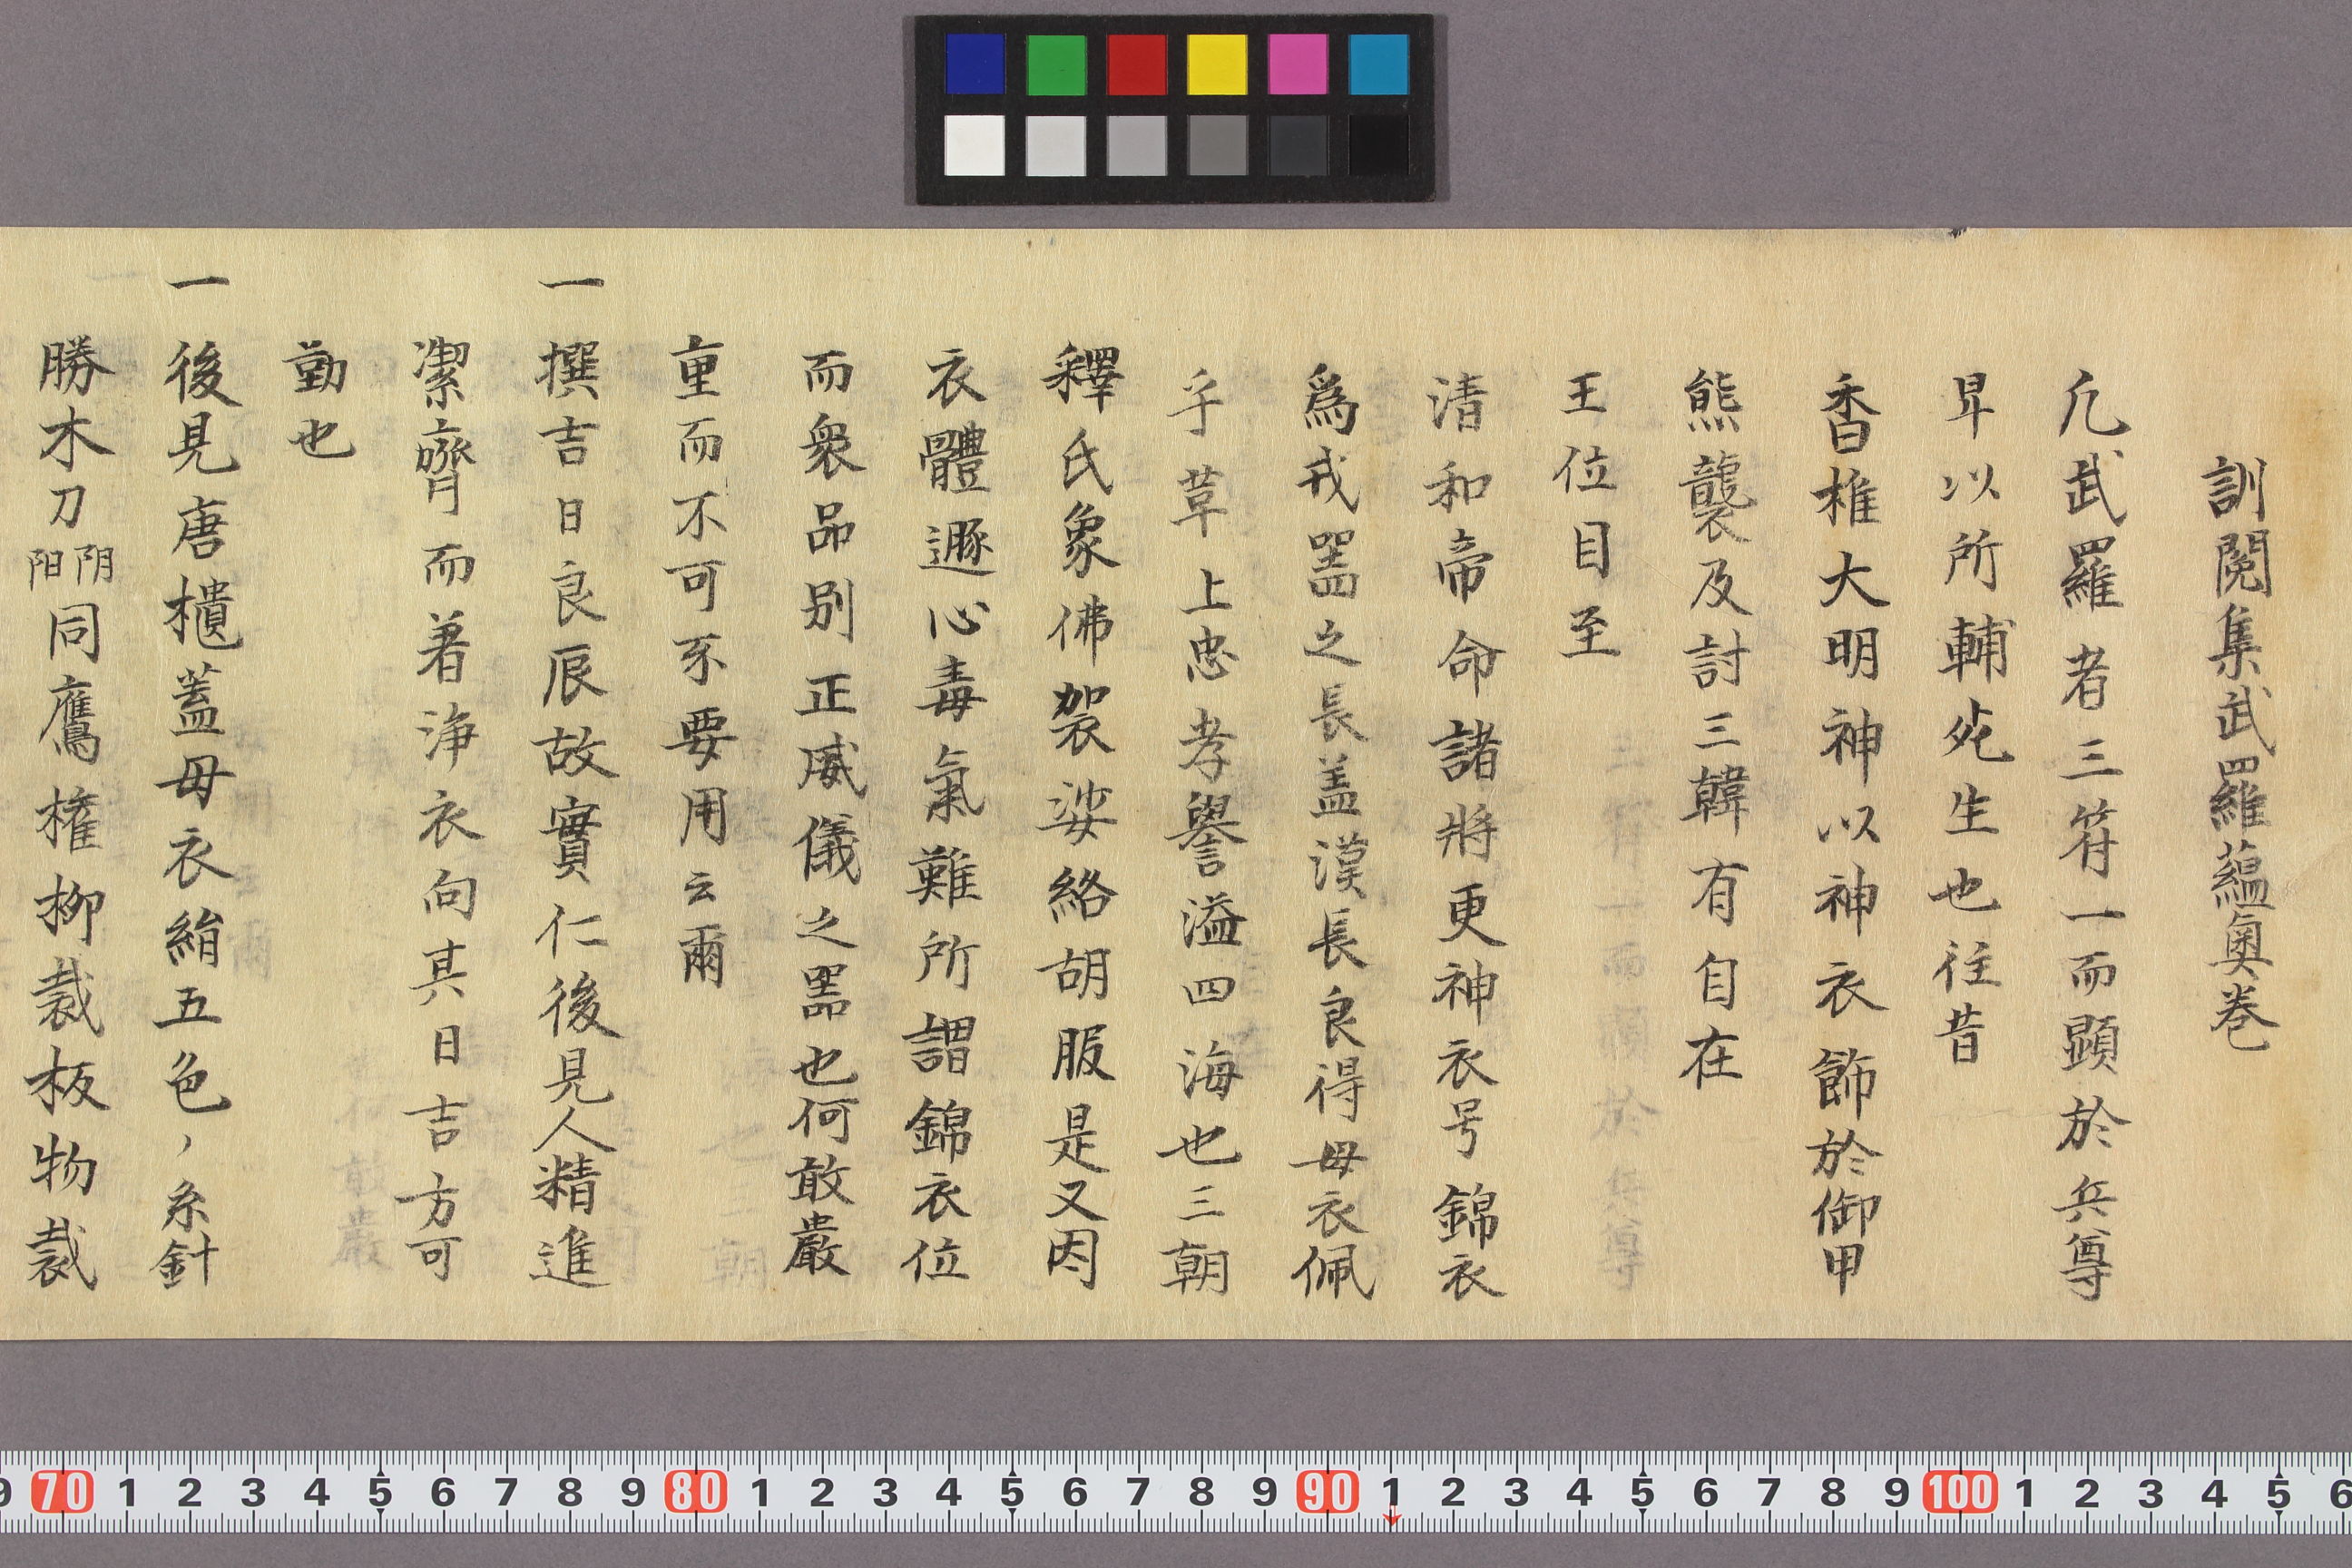 訓閲集武羅蘊奥巻
凢武羅者三符一而顕於兵尊
卑以所輔死生也往昔
香椎大明神以神衣飾於御甲
熊襲及討三韓有自在
王位目至
清和帝命諸將更神衣号錦衣
爲戎噐之長盖漢長良得母衣佩
乎草上忠孝譽溢四海也三朝
釋氏象佛袈娑絡胡服是又因
衣體遯心毒氣難所謂錦衣位
而衆品別正威儀之噐也何敢嚴
重而不可不要用云爾
一撰吉日良辰故實仁後見人精進
潔齊而著浄衣向其日吉方可
勤也
一後見唐櫃蓋母衣絹五色ノ糸針
勝木刀阴阳同鷹権柳裁板物裁
9 70 1 2 3 4 5 6 7 8 9 80 1 2 3 4 5 6 7 8 9 90 1 2 3 4 5 6 7 8 9 100 1 2 3 4 5 6